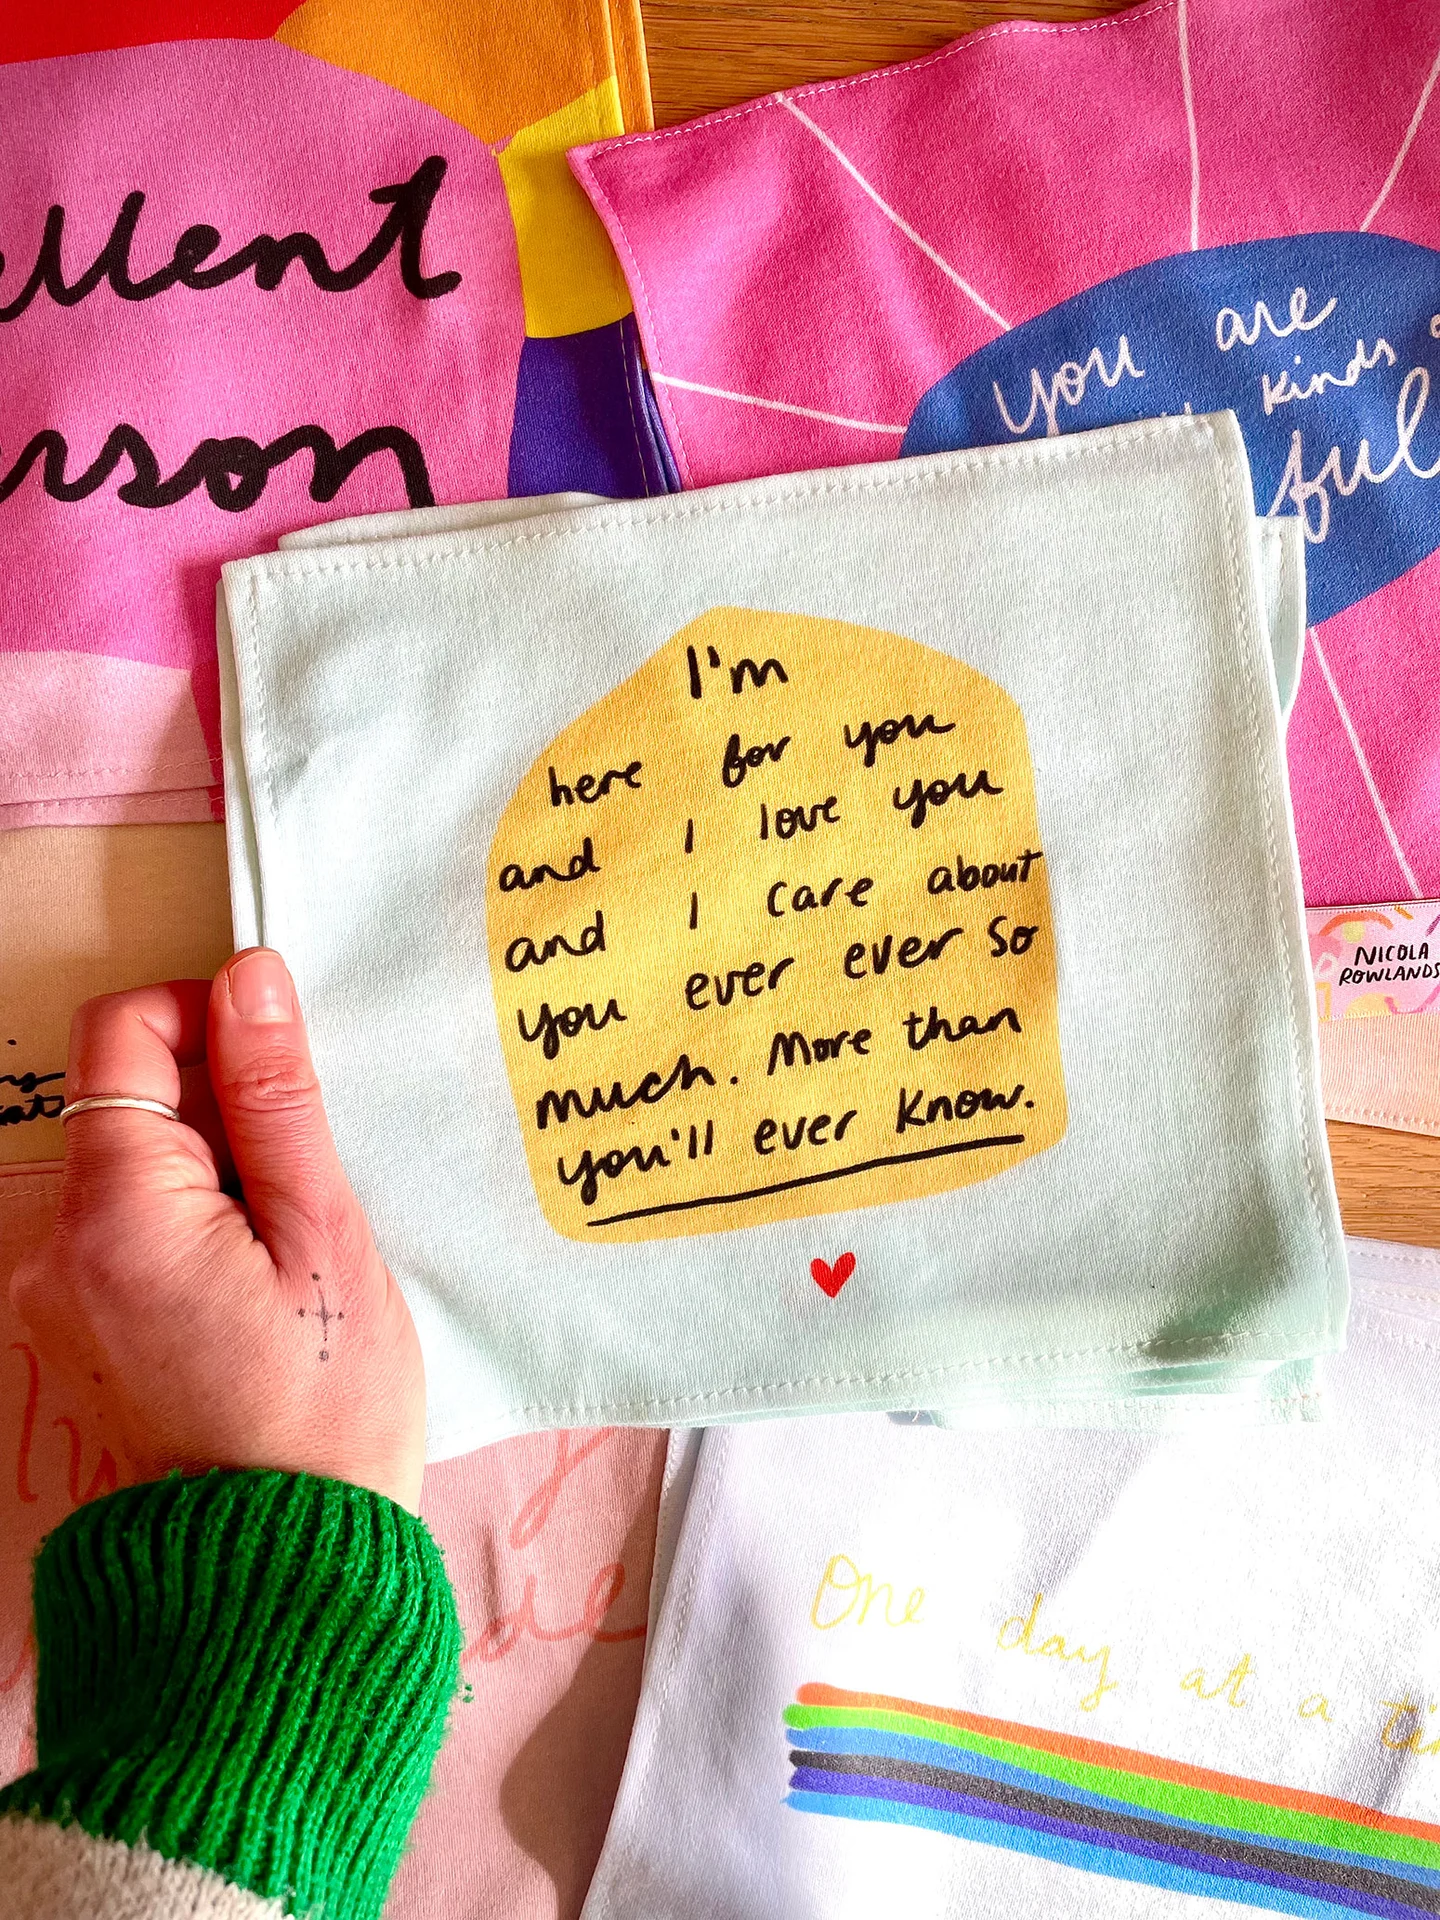 you are
kinds
ful
I'm
here for you
and I love you
and I care about
you ever ever so
much. More than
you'll ever know.
NICOLA
ROWLANDS
One day at a